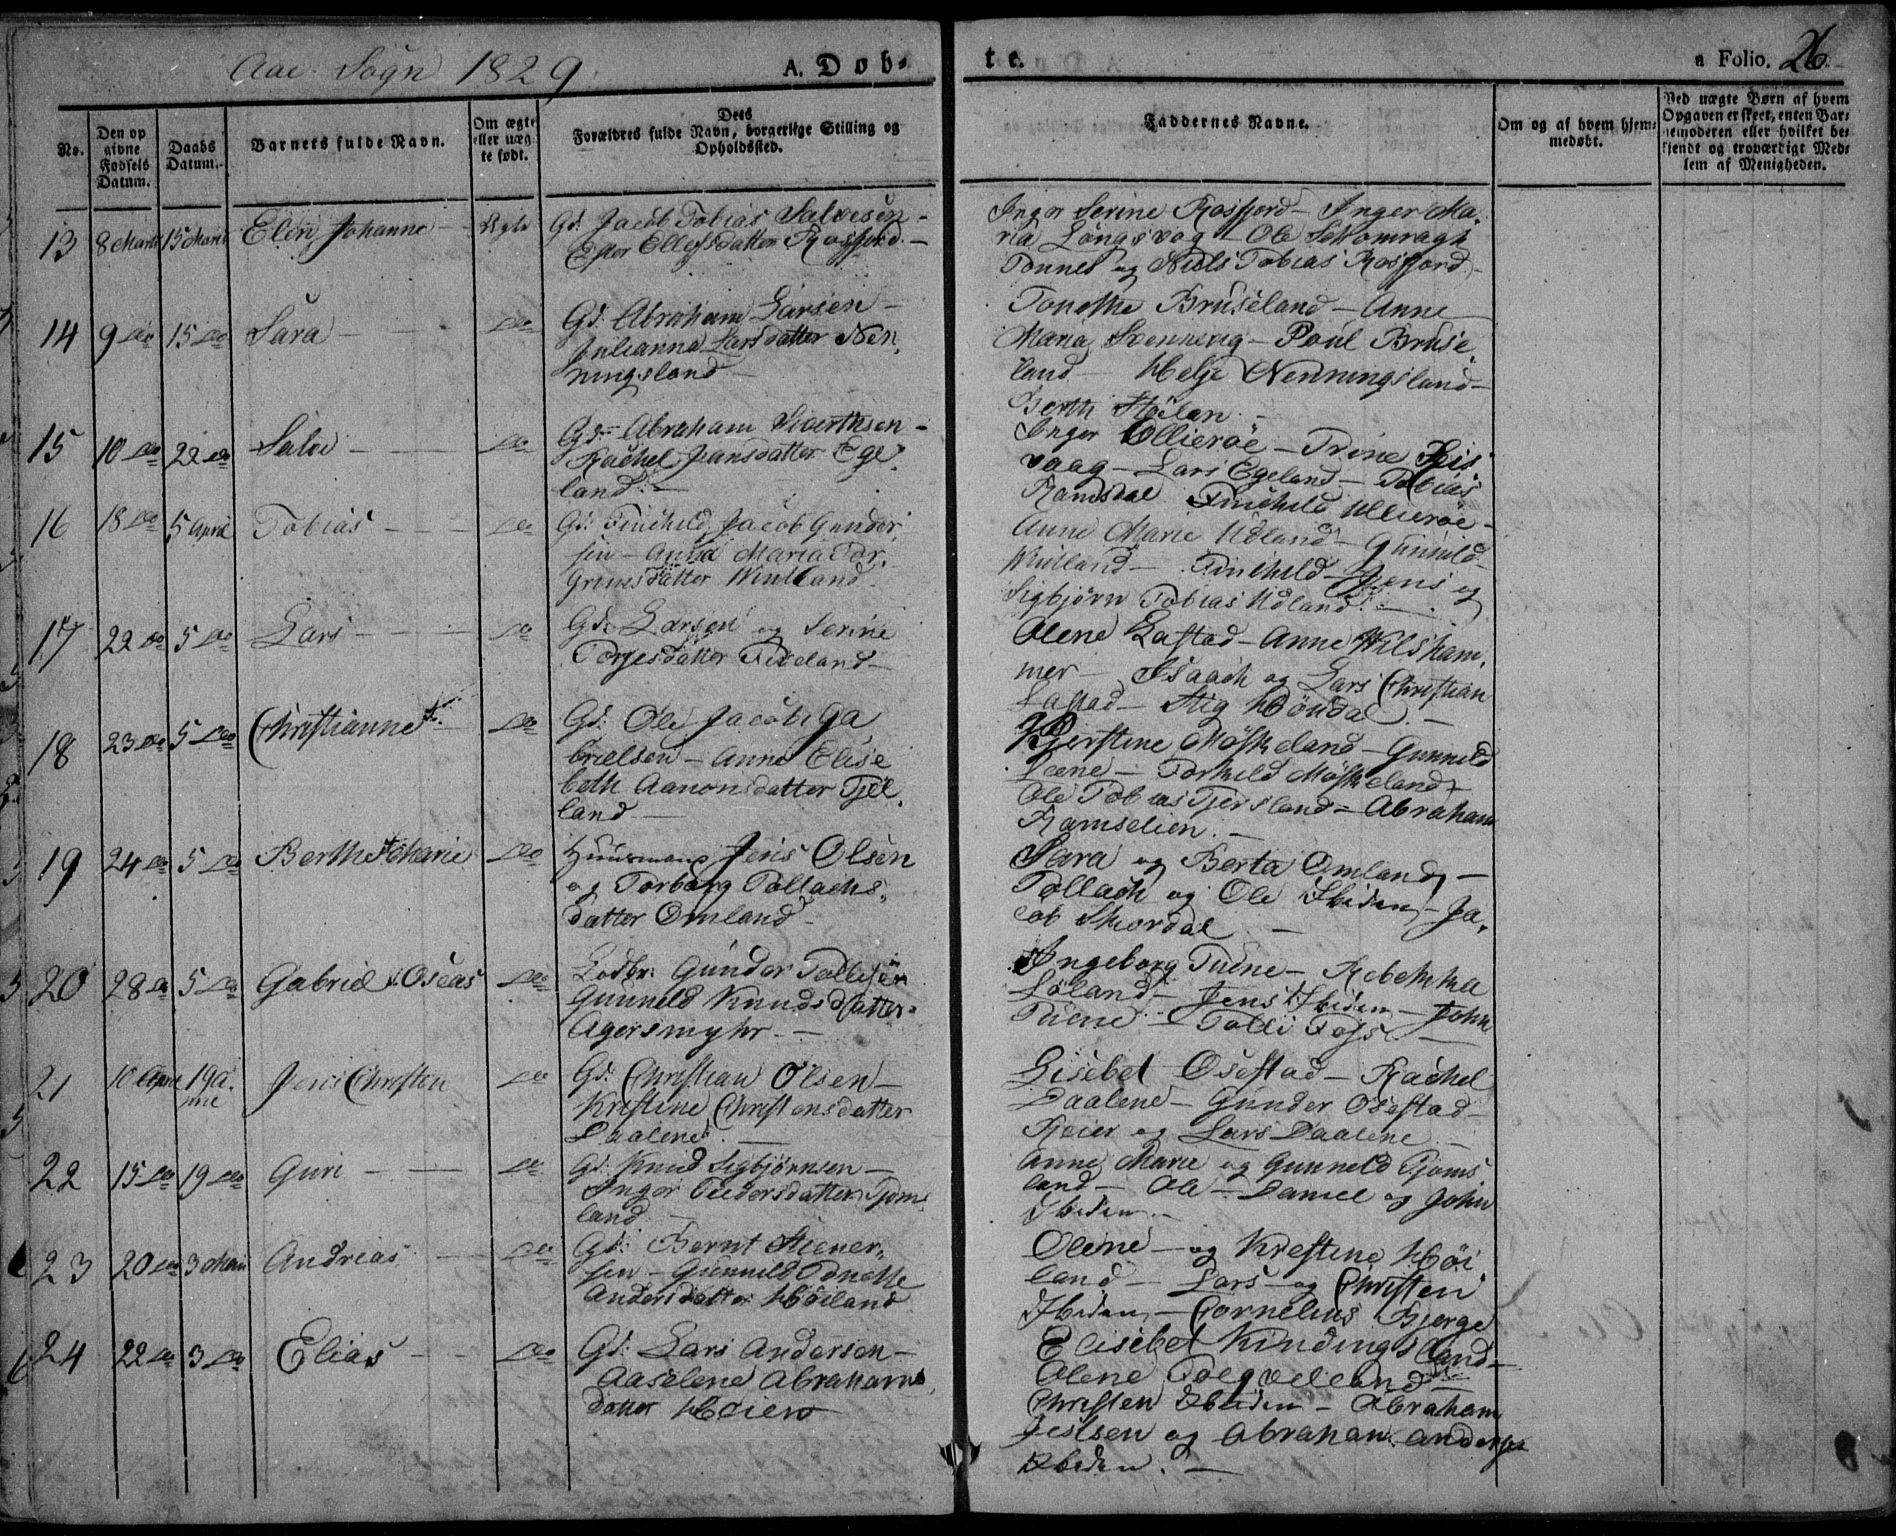 Aae Sogn 1829
A. Døb-
te.
a Folio. 26
No.
Den op
givne
Fødsels
Datum.
Daabs
Datum.
Barnets fulde Navn.
Om ægte
eller uæg-
te født.
Dets
Forældres fulde Navn, borgerlige Stilling og
Opholdssted.
Faddernes Navne.
Om og af hvem hjem-
medøbt.
Ved uægte Børn af hvem
Opgaven er skeet, enten Bar-
nemoderen eller hvilket be-
kjendt og troværdigt Med-
lem af Menigheden.
13 8 Marti 15 Marti Elen Johanne - Ægte Gd. Jacob Tobias Salvesen -
Ester Ellefsdatter Rosfjord. -
Inger Serine Rosfjord - Inger Ma-
ria Långsvog - Ole Schomragh
Tonnes og Niels Tobias Rosfjord -
14 9 do 15 do Sara - do Gd. Abraham Larsen -
Julianna Larsdatter Nen,
ningsland -
Tonethe Bruseland - Anne
Maria Svennevig - Poul Bruse,
land - Helje Nenningsland -
Berthe Höiland. -
15 10 do 22 do Salve - do Gd. Abraham Siverthsen -
Rachel Jansdatter Ege,
land. -
Inger Ollierøe - Trine Spis
vaag - Lars Egeland - Tobias
Ramsdal Trinchild Ullierøe -
16 18 do 5 April Tobias - do Gd. Jacob Gunder,
sen - Anna Maria Tor,
grimsdatter Windland -
Anne Marie Udland - Gunnild
Windland - Jens og
Sigbjørn Tobias Udland. -
17 22 do 5 do Lars - do Gd. Larsen og Serine
Torjesdatter Tiveland -
Olene Lastad - Anne Wilsham,
mer - Isaach og Lars Christian
Lastad - Stig Höndal. -
18 23 do 5 do Christianne do Gd. Ole Jacob Ga,
brielsen - Anne Elise
beth Aanonsdatter Tjel,
land -
Kjerstine Möskeland - Gunneld
Leene - Torkild Möskeland -
Ole Tobias Tjersland - Abraham
Ramselien. -
19 24 do 5 do Berthe Marie do Huusmand Jens Olsen
og Torborg Tollachs,
datter Omland -
Sara og Berta Omland, -
Tollach og Ole Ibidem - Ja,
cob Skordal -
20 28 do 5 do Gabriel Oseas do Lodbr. Gunder Tollefsen
Gunneld Knudsdatter -
Agersmyhr. -
Ingeborg Tuene - Rebekka
Löland - Jens Ibidem - John
Tuene - Tolli Foss -
21 10 April 19 A-
prile Jens Christen do Gd. Christian Olsen -
Kristine Christensdatter
Daalene. -
Lisebet Osestad - Rachel
Daalene - Gunder Osestad -
Reier og Lars Daalene. -
22 15 do 19 do Guri - do Gd. Knud Sigbjørnsen -
Inger Tjom,
land -
Anne Marie og Gunneld Tjoms
land - Ole - Daniel og John
Ibidem. -
23 20 do 3 Mai Andreas - do Gd. Bernt Stener,
sen - Gunneld Tonette
Andersdatter Höiland
Olene - og Krestine Höi
land - Lars - og Christen
Ibidem - Cornelius Bjerge
24 22 do 3 do Elias - do Gd. Lars Andersen -
Aaselene Abrahams,
datter
Elisebet Kindingsland -
Olene
Christen Ibidem - Abraham
og Abraham Anders
Ibidem. -